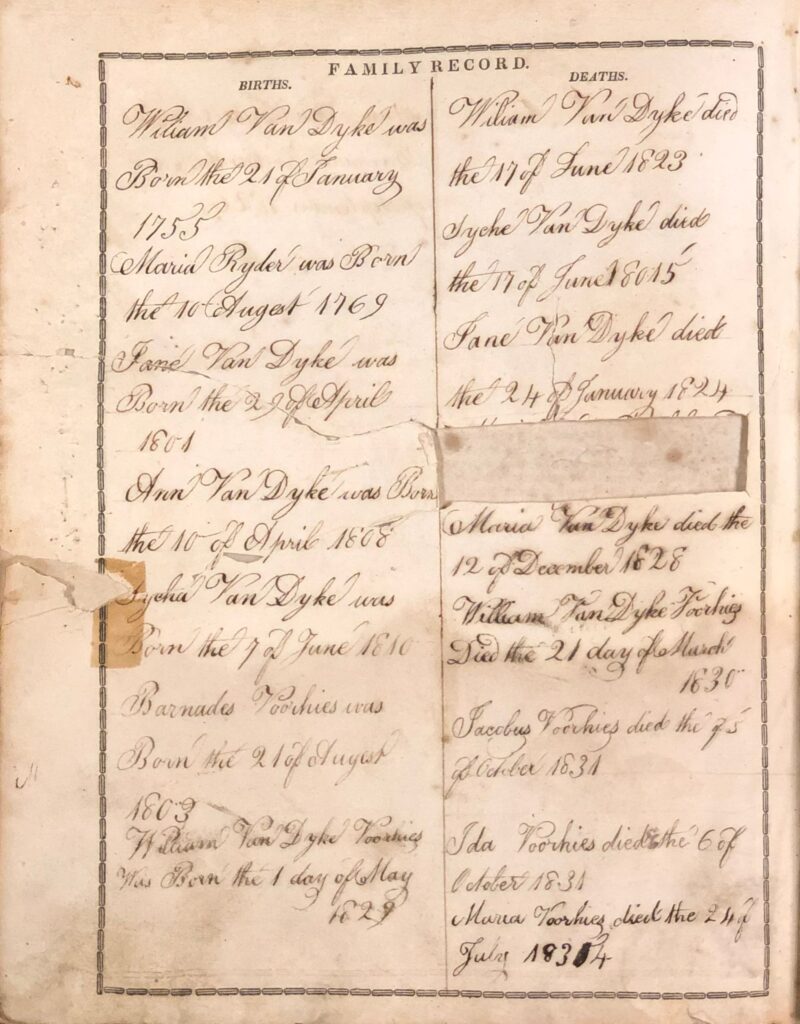 FAMILY RECORD.
BIRTHS.
William Van Dyke was
Born the 21 of January
1755
Maria Ryder was Born
the 10 August 1769
Jane Van Dyke was
Born the 29 of April
1801
Ann Van Dyke was Born
the 10 of April 1808
Sycha Van Dyke was
Born the 7 of June 1810
Barnades Voorhies was
Born the 21 of Augest
1803
William Van Dyke Voorhies
Was Born the 1 day of May
1829
DEATHS.
William Van Dyke died
the 17 of June 1823
Syche Van Dyke died
the 17 of June 18015
Jane Van Dyke died
the 24 of January 1824
Maria Van Dyke died the
12 of December 1828
William Van Dyke Voorhies
Died the 21 day of March
1830
Jacobus Voorhies died the
of October 1831
Ida Voorhies died the 6 of
October 1831
Maria Voorhies died the 24 of
July 1834